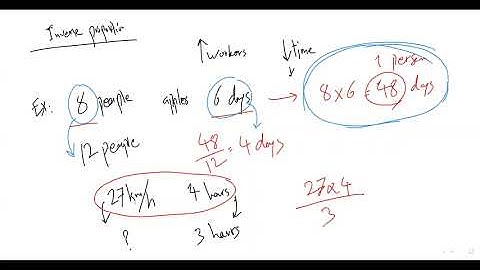 Inverse proportion
↑ workers ↓ time
1 person
Ex: 8 people apples 6 days → 8 x 6 = 48 days
12 people 48/12 = 4 days
27 km/h 4 hours 27x4/3
? 3 hours